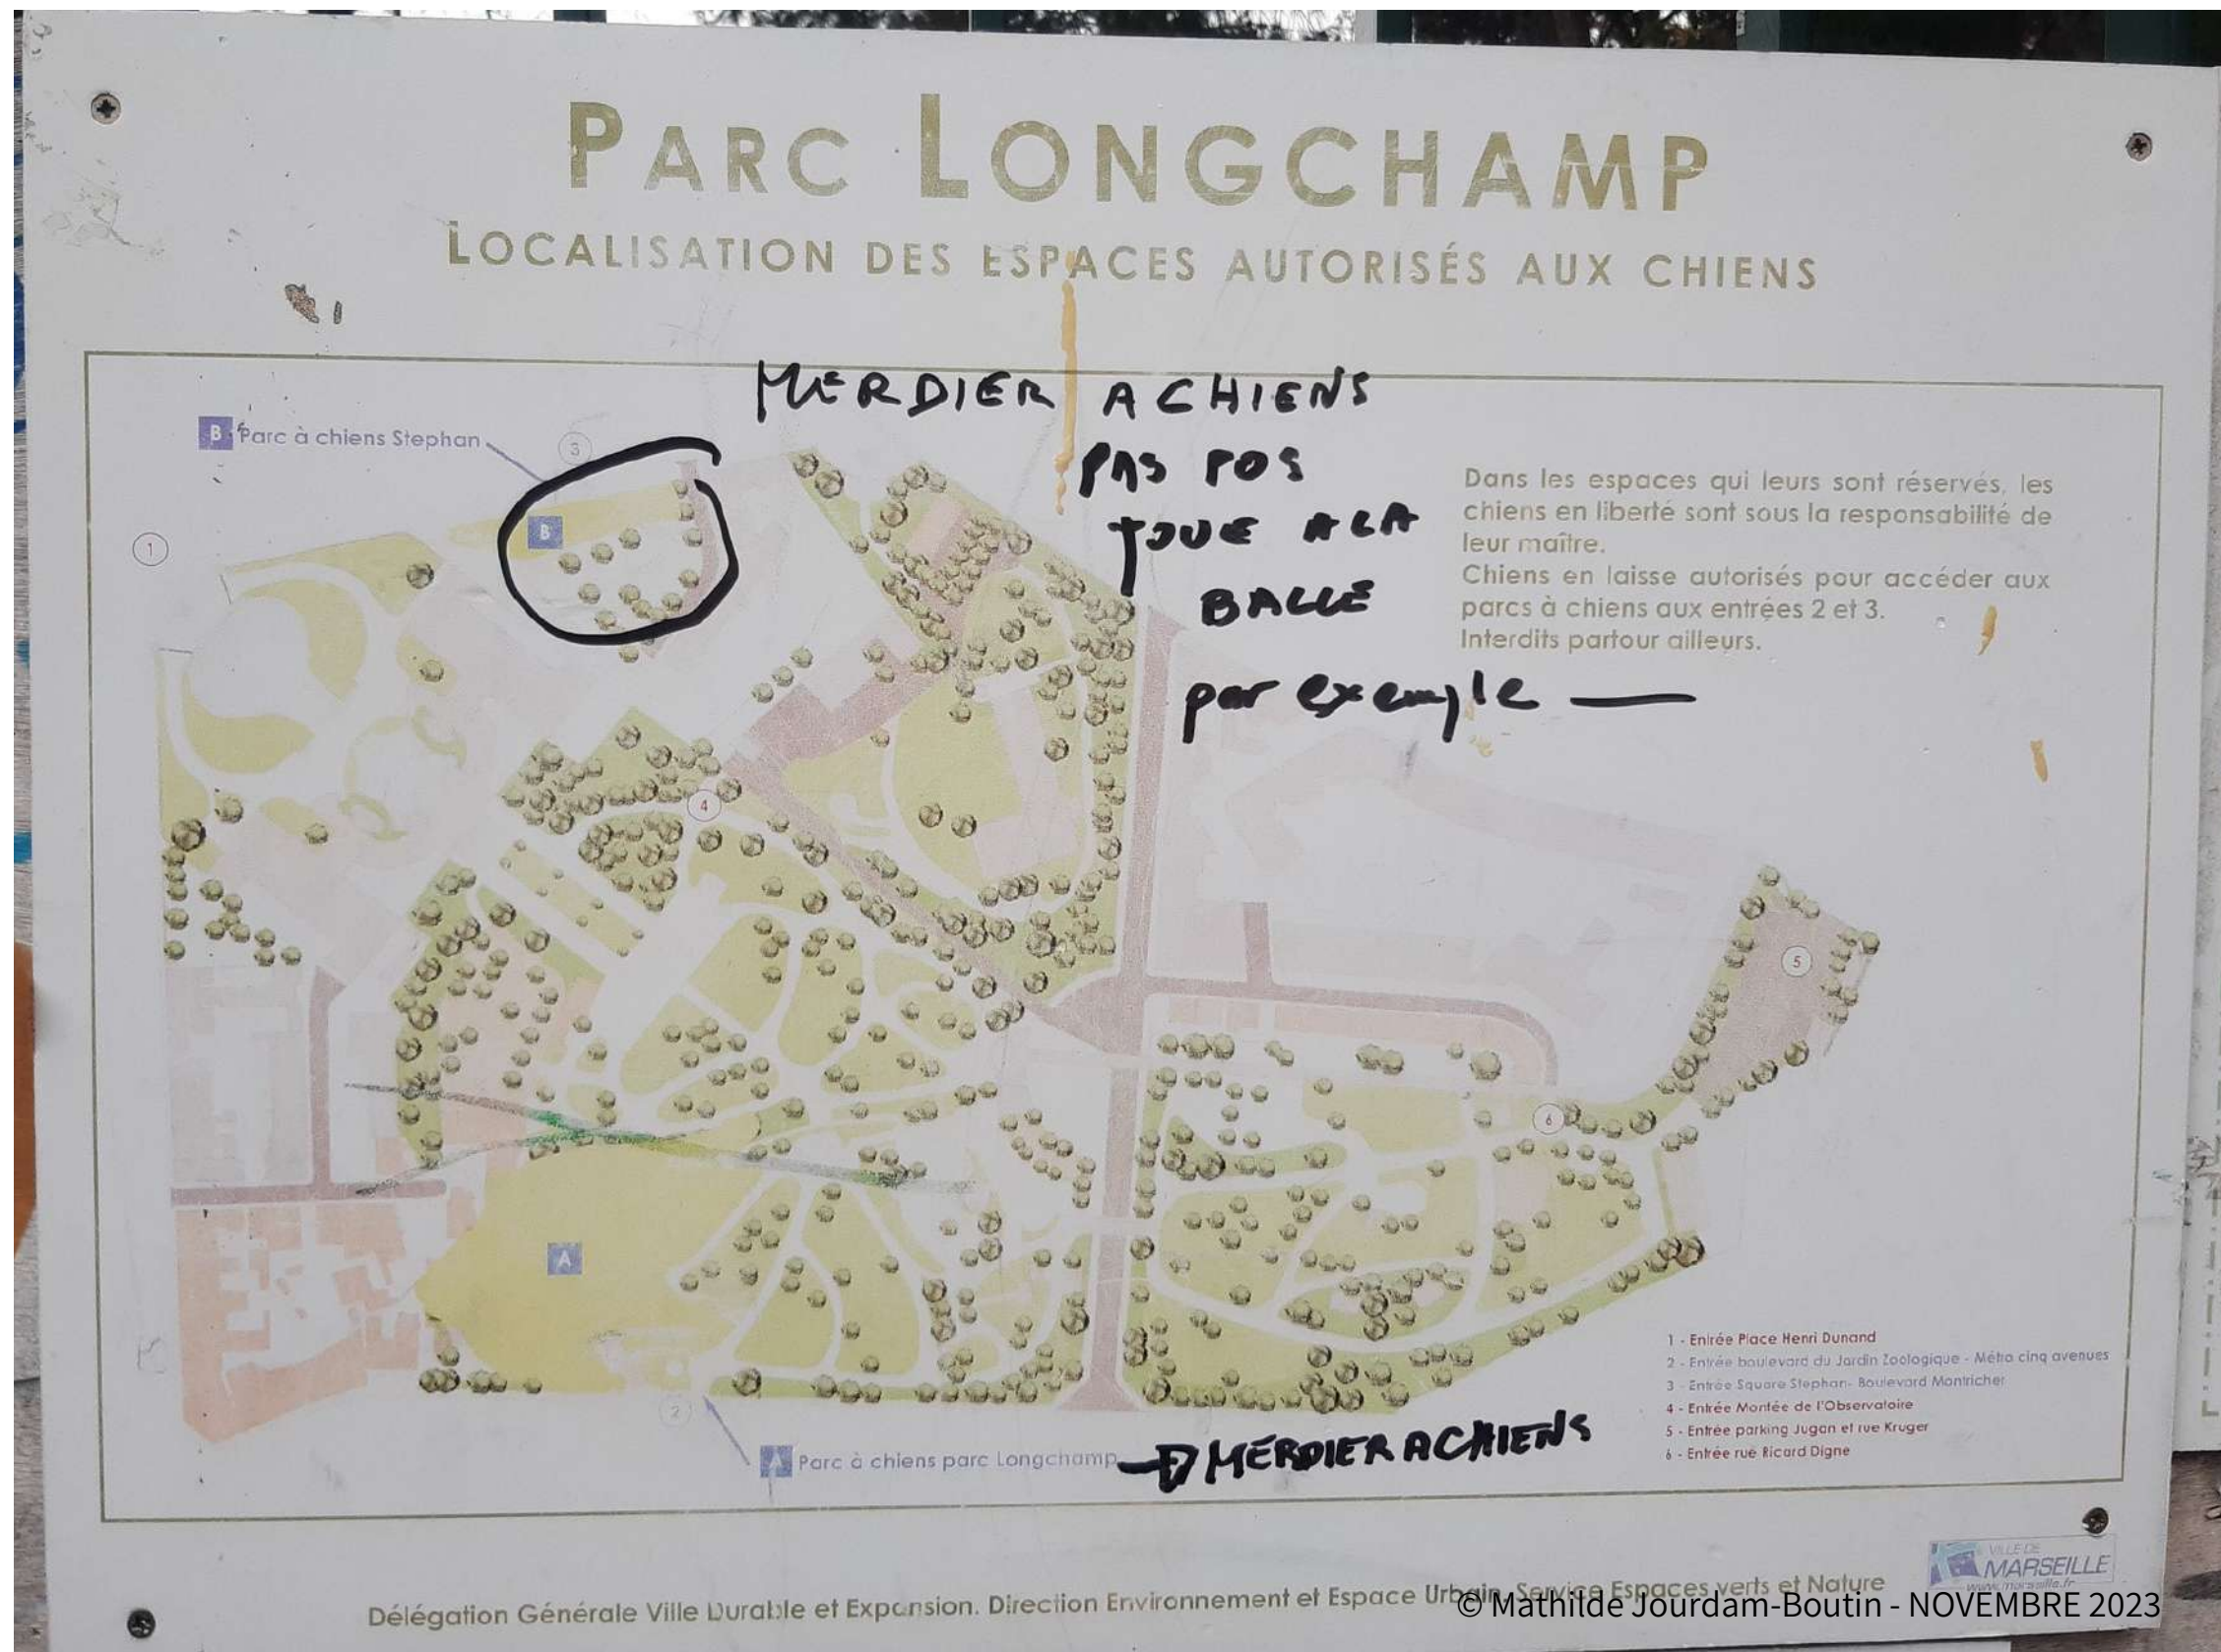 PARC LONGCHAMP
LOCALISATION DES ESPACES AUTORISÉS AUX CHIENS
MERDIER A CHIENS
B Parc à chiens Stephan
3
PAS POS
JOUE A LA
BALLE
par exemple —
Dans les espaces qui leurs sont réservés, les
chiens en liberté sont sous la responsabilité de
leur maître.
Chiens en laisse autorisés pour accéder aux
parcs à chiens aux entrées 2 et 3.
Interdits partour ailleurs.
B
1
4
5
6
A
2
A Parc à chiens parc Longchamp
MERDIER A CHIENS
1 - Entrée Place Henri Dunand
2 - Entrée boulevard du Jardin Zoologique - Métro cinq avenues
3 - Entrée Square Stephan- Boulevard Montricher
4 - Entrée Montée de l'Observatoire
5 - Entrée parking Jugan et rue Kruger
6 - Entrée rue Ricard Digne
VILLE DE
MARSEILLE
www.marseille.fr
Délégation Générale Ville Durable et Expansion. Direction Environnement et Espace Urbain. Service Espaces verts et Nature
© Mathilde Jourdam-Boutin - NOVEMBRE 2023